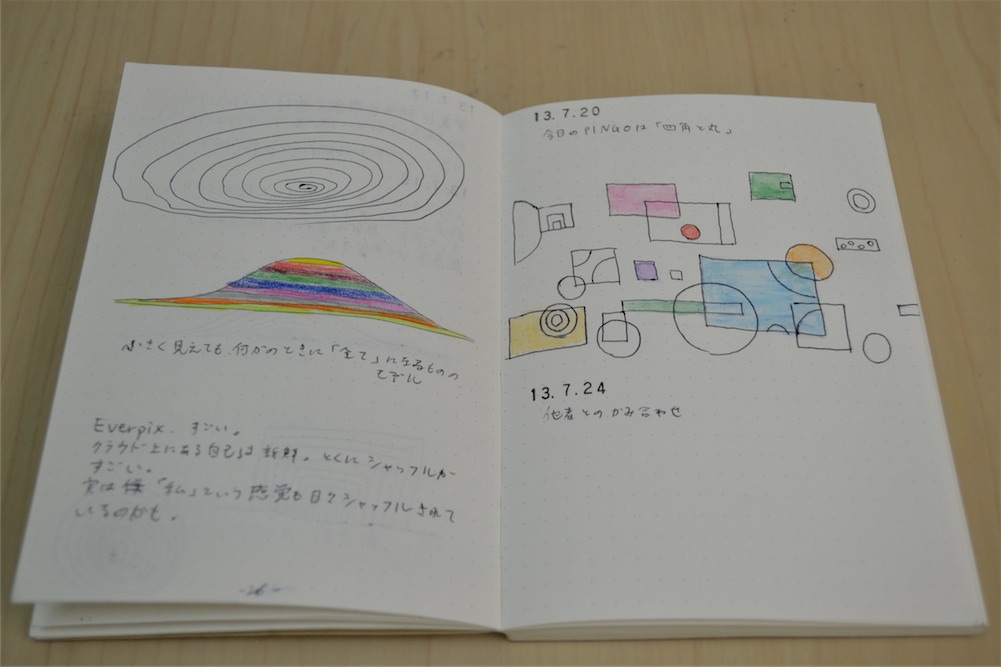 小さく見えても、何かのときに「全て」になるものの
モデル
Everpix. すごい。
クラウド上にある自己は新鮮。とくにシャッフルが
すごい。
実は「私」という感覚も日々シャッフルされて
いるのかも。
-26-
13.7.20
今日のPINGOは「四角と丸」
13.7.24
他者とのかみ合わせ